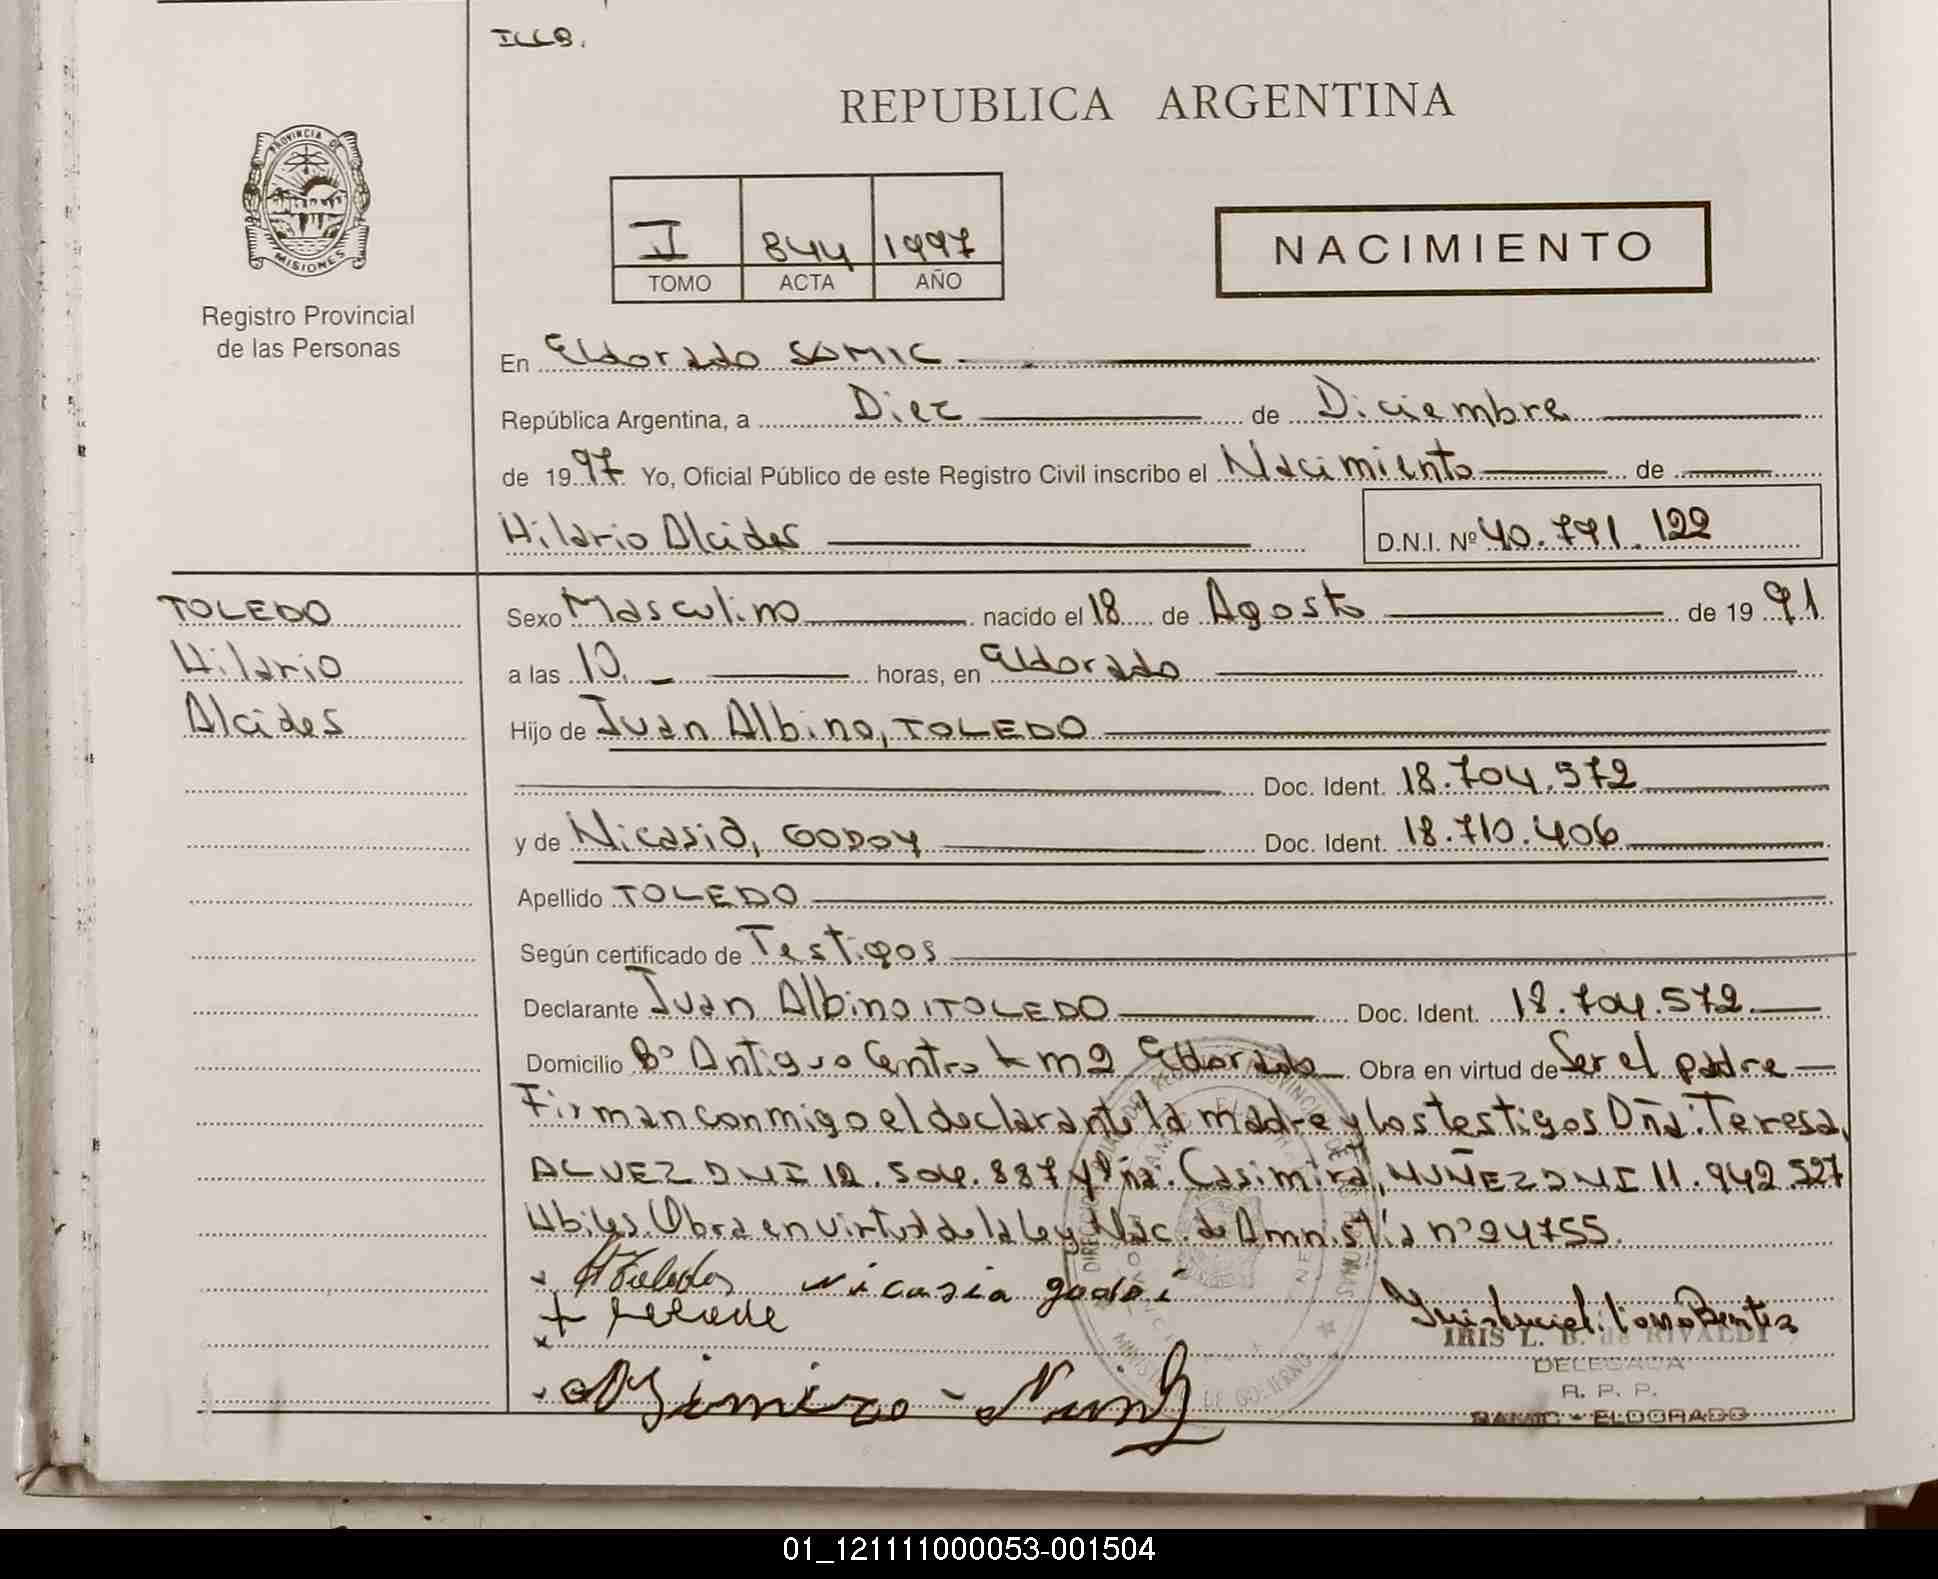 ILLB.
REPUBLICA ARGENTINA
PROVINCIA DE
MISIONES
Registro Provincial
de las Personas
I 844 1997
TOMO ACTA AÑO
NACIMIENTO
En Eldorado SAMIC.
República Argentina, a Diez de Diciembre
de 1997 Yo, Oficial Público de este Registro Civil inscribo el Nacimiento de
Hilario Alcides D.N.I. Nº 40.771.122
TOLEDO
Hilario
Alcides
Sexo Masculino nacido el 18 de Agosto de 1991
a las 10. horas, en Eldorado
Hijo de Juan Albino, TOLEDO
Doc. Ident. 18.704.572
y de Nicasia, GODOY Doc. Ident. 18.710.406
Apellido TOLEDO
Según certificado de Testigos
Declarante Juan Albino, TOLEDO Doc. Ident. 18.704.572
Domicilio Bº Antiguo Centro Km 2 Eldorado Obra en virtud de Ser el padre
Firman conmigo el declarante la madre y los testigos Dña: Teresa,
ALVEZ DNI 12.504.887 y Dña. Casimira, NUÑEZ DNI 11.942.527
Hbiles. Obra en virtud de la Ley Nac. de Amnistía nº 24755.
Nicasia godoi
Casimira Nuñez
IRIS L. B. de RIVALDI
DELEGADA
R. P. P.
SAMIC - ELDORADO
01_121111000053-001504